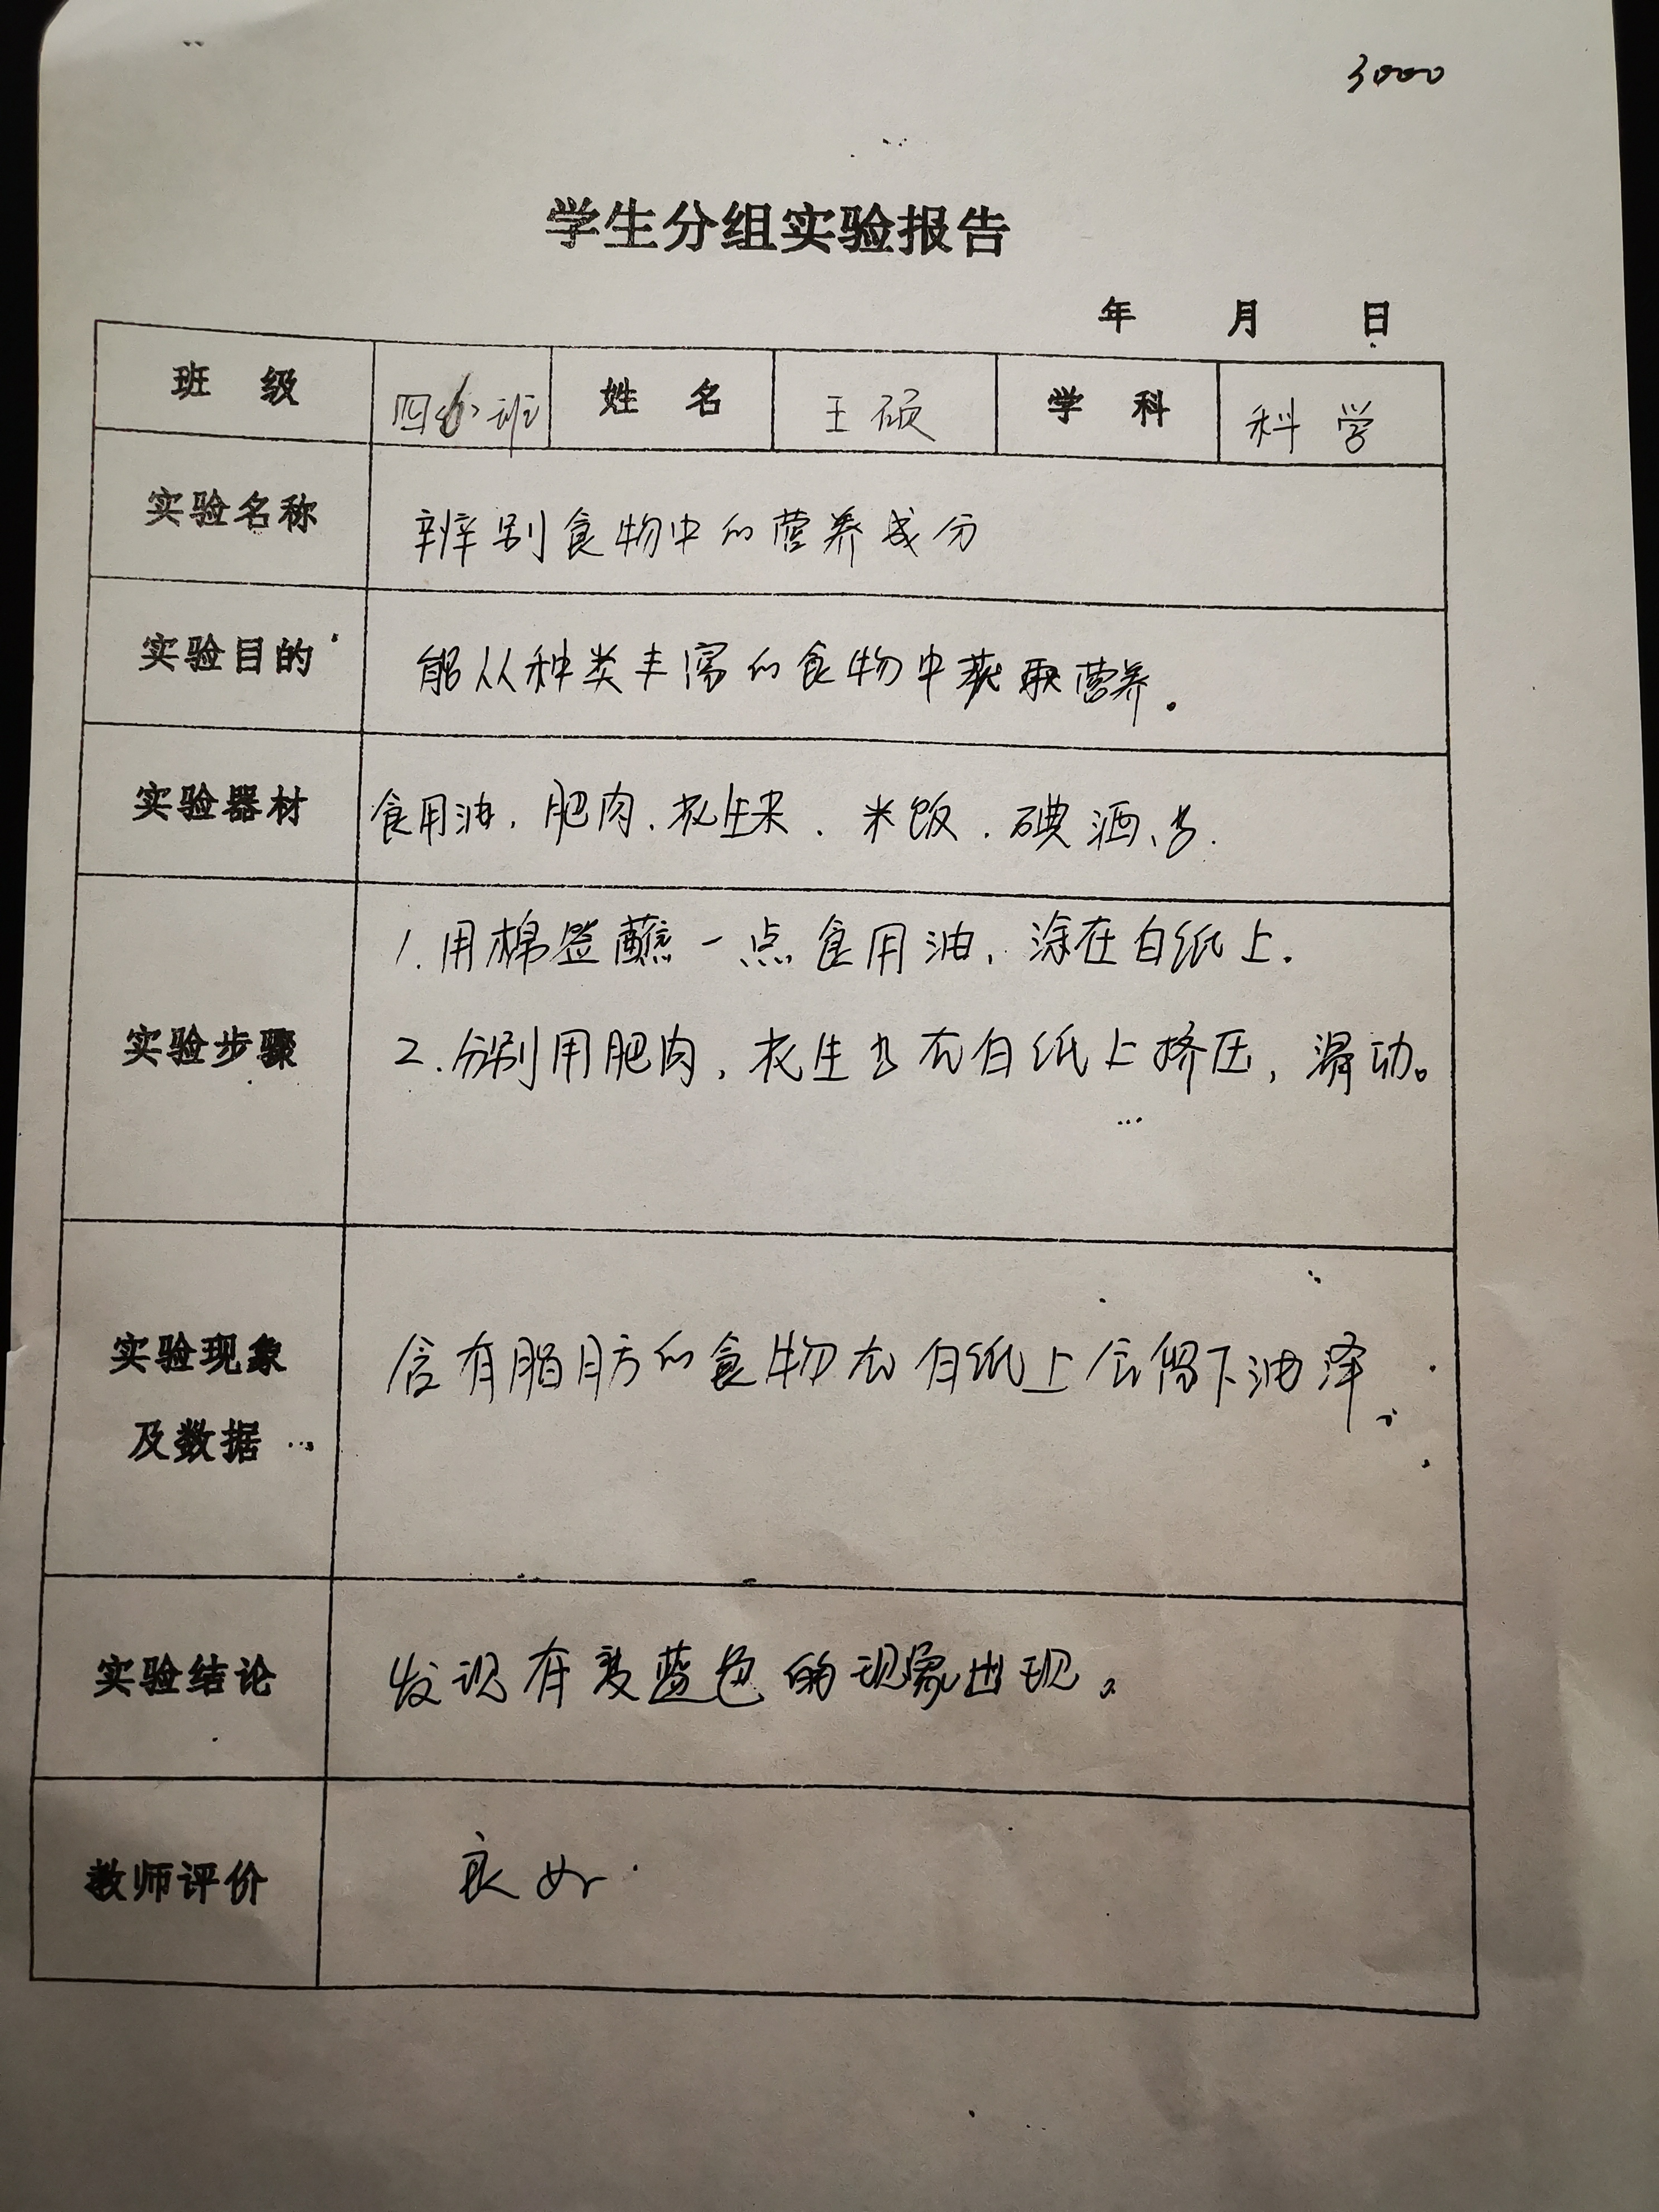 3000
学生分组实验报告
年 月 日
班 级 四 班 姓 名 王硕 学 科 科学
实验名称 辨别食物中的营养成分
实验目的 能从种类丰富的食物中获取营养。
实验器材 食用油、肥肉、花生米、米饭、碘酒、
1.用棉签蘸一点食用油,涂在白纸上.
实验步骤 2.分别用肥肉,花生 在白纸上挤压,滑动。
实验现象 含有脂肪的食物在白纸上会留下油泽。
及数据
实验结论 发现有变蓝色的现象出现。
教师评价 良好.